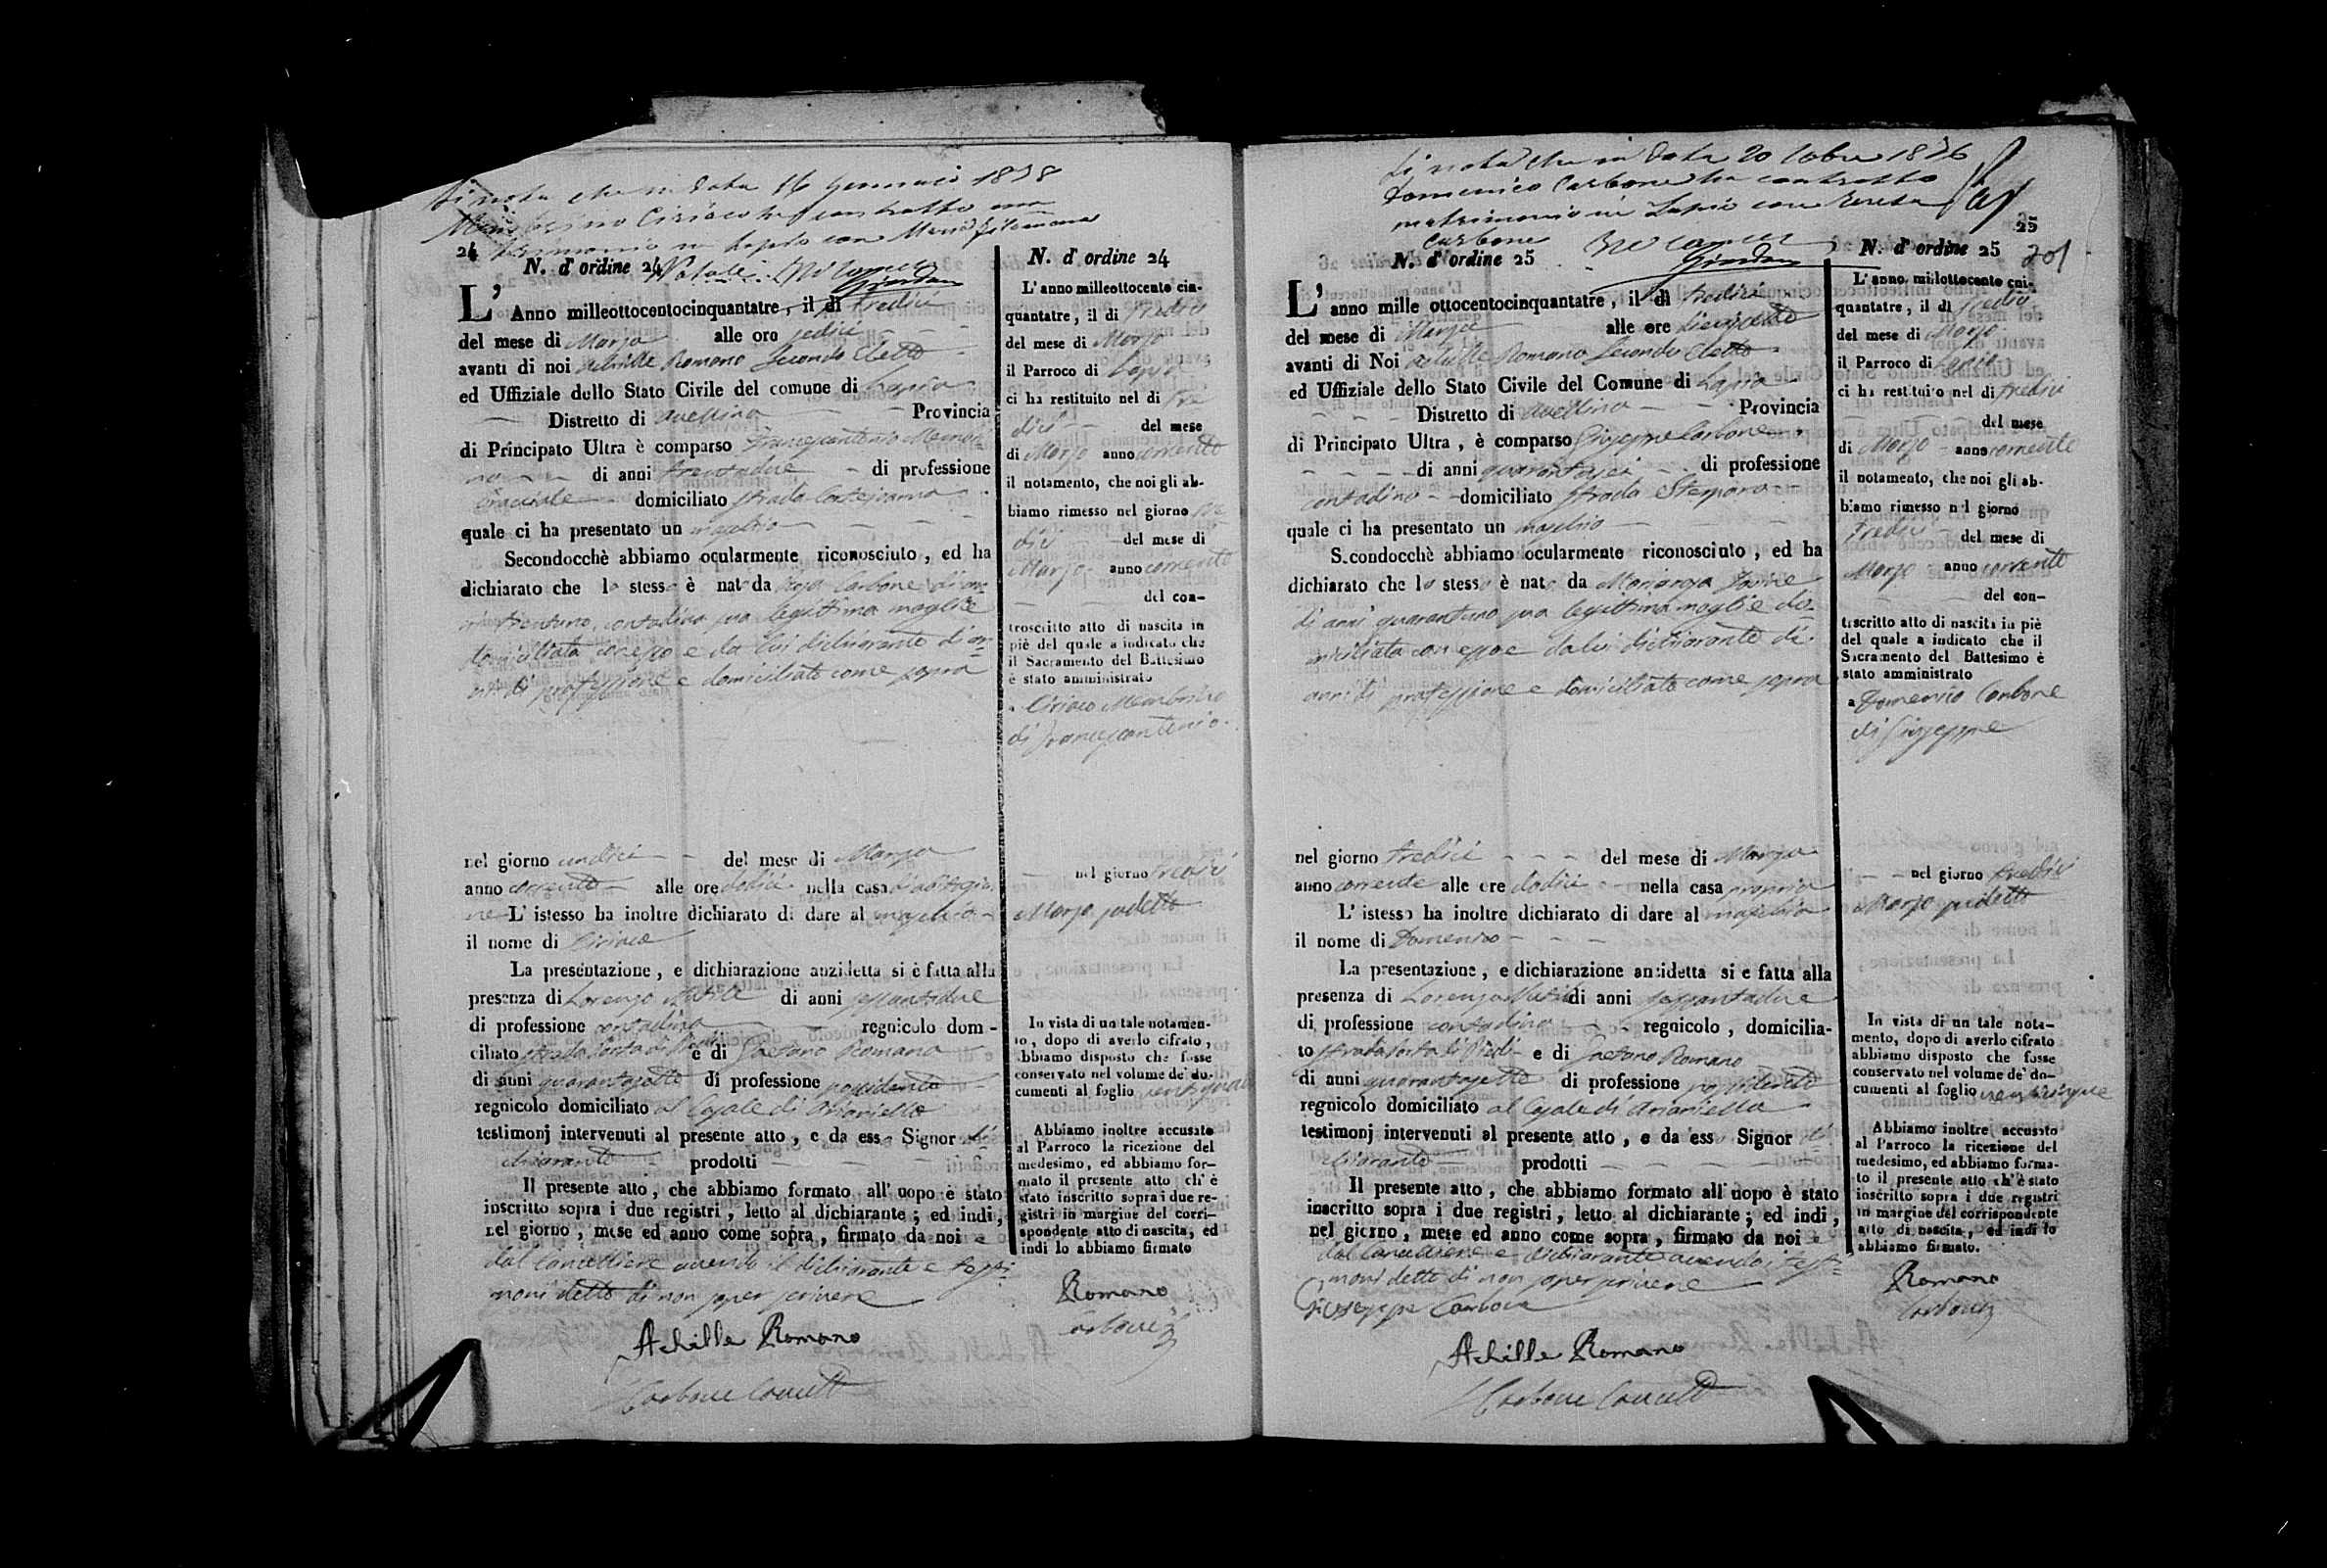 Si nota che in data 16 Gennaio 1878
Ciriaco ha contratto ma
trimonio in Lapio con Maria Filomena
24
N. d' ordine 24
L' Anno milleottocentocinquantatre, il dì tredici
del mese di Marzo alle ore sedici
avanti di noi Achille Romano Secondo Eletto
ed Uffiziale dello Stato Civile del comune di Lapio
Distretto di Avellino Provincia
di Principato Ultra è comparso Francescantonio
no di anni trentadue di professione
domiciliato strada
quale ci ha presentato un maschio
Secondocchè abbiamo ocularmente riconosciuto, ed ha
dichiarato che lo stesso è nato da Rosa Carbone di an-
ni trentuno, contadina sua legittima moglie
domiciliata con esso e da lui dichiarante di an-
ni di professione e domiciliato come sopra
nel giorno undici del mese di Marzo
anno corrente alle ore dodici nella casa d'abitazio
ne L' istesso ha inoltre dichiarato di dare al maschio
il nome di Ciriaco
La presentazione, e dichiarazione anzidetta si è fatta alla
presenza di Lorenzo di anni sessantadue
di professione contadino regnicolo domi-
ciliato strada Porta di e di Gaetano Romano
di anni quarantasette di professione possidente
regnicolo domiciliato al Casale di Arianiello
testimonj intervenuti al presente atto, e da esso Signor di
chiarante prodotti
Il presente atto, che abbiamo formato all' uopo è stato
inscritto sopra i due registri, letto al dichiarante; ed indi,
nel giorno, mese ed anno come sopra, firmato da noi e
dal Cancelliere avendo il dichiarante e testi-
moni detto di non saper scrivere
Achille Romano
Carbone
N. d' ordine 24
L' anno milleottocento cin-
quantatre, il di tredici
del mese di Marzo
il Parroco di Lapio
ci ha restituito nel di tre
dici del mese
di Marzo anno corrente
il notamento, che noi gli ab-
biamo rimesso nel giorno tre
dici del mese di
Marzo anno corrente
del con-
troscritto atto di nascita in
piè del quale a indicato che
il Sacramento del Battesimo
è stato amministrato
a Ciriaco
di Francescantonio
nel giorno tredici
Marzo sudetto
In vista di un tale notamen-
to, dopo di averlo cifrato,
abbiamo disposto che fosse
conservato nel volume de' do-
cumenti al foglio
Abbiamo inoltre accusato
al Parroco la ricezione del
medesimo, ed abbiamo for-
mato il presente atto ch' è
stato inscritto sopra i due re-
gistri in margine del corri-
spondente atto di nascita, ed
indi lo abbiamo firmato
Romano
Carbone
Si nota che in data 20 1876
Domenico Carbone ha contratto
matrimonio in Lapio con Teresa
Carbone
25
201
N. d' ordine 25
L' anno mille ottocentocinquantatre, il dì tredici
del mese di Marzo alle ore dieciotto
avanti di Noi Achille Romano Secondo Eletto
ed Uffiziale dello Stato Civile del Comune di Lapio
Distretto di Avellino Provincia
di Principato Ultra, è comparso Giuseppe Carbone
di anni quarantasei di professione
contadino domiciliato strada
quale ci ha presentato un maschio
Secondocchè abbiamo ocularmente riconosciuto, ed ha
dichiarato che lo stesso è nato da Mariarosa
di anni quarantuno sua legittima moglie do-
miciliata con esso e da lui dichiarante di
anni di professione e domiciliato come sopra
nel giorno tredici del mese di Marzo
anno corrente alle ore dodici nella casa propria
L' istesso ha inoltre dichiarato di dare al maschio
il nome di Domenico
La presentazione, e dichiarazione ansidetta si e fatta alla
presenza di Lorenzo di anni sessantadue
di professione contadino regnicolo, domicilia-
to strada Porta di e di Gaetano Romano
di anni quarantasette di professione possidente
regnicolo domiciliato al Casale di Arianiello
testimonj intervenuti al presente atto, e da esso Signor di
chiarante prodotti
Il presente atto, che abbiamo formato all' uopo è stato
inscritto sopra i due registri, letto al dichiarante; ed indi,
nel giorno, mese ed anno come sopra, firmato da noi e
dal Cancelliere e dichiarante avendo i testi-
moni detto di non saper scrivere
Giuseppe Carbone
Achille Romano
Carbone
N. d' ordine 25
L' anno millottocento cin-
quantatre, il dì tredici
del mese di Marzo
il Parroco di Lapio
ci ha restituito nel di tredici
del mese
di Marzo anno corrente
il notamento, che noi gli ab-
biamo rimesso nel giorno
tredici del mese di
Marzo anno corrente
del con-
troscritto atto di nascita in piè
del quale a indicato che il
Sacramento del Battesimo è
stato amministrato
a Domenico Carbone
di Giuseppe
nel giorno tredici
Marzo sudetto
In vista di un tale nota-
mento, dopo di averlo cifrato
abbiamo disposto che fosse
conservato nel volume de' do-
cumenti al foglio venticinque
Abbiamo inoltre accusato
al Parroco la ricezione del
medesimo, ed abbiamo forma-
to il presente atto ch' è stato
inscritto sopra i due registri
in margine del corrispondente
atto di nascita, ed indi lo
abbiamo firmato.
Romano
Carbone